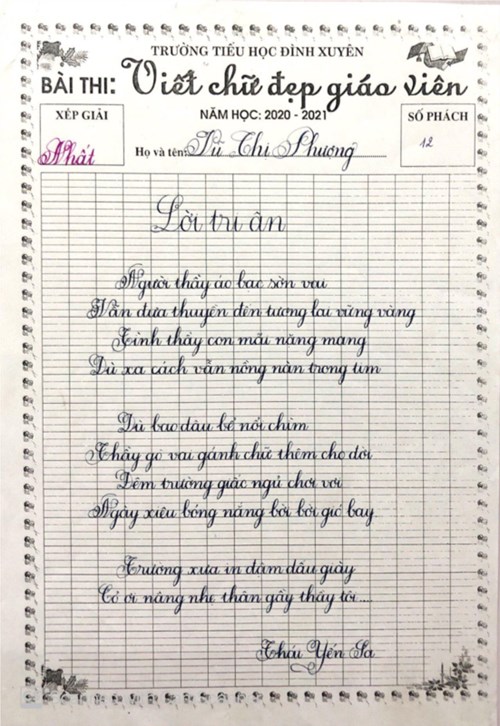 TRƯỜNG TIỂU HỌC ĐÌNH XUYÊN
BÀI THI: Viết chữ đẹp giáo viên
NĂM HỌC: 2020 - 2021
XẾP GIẢI
Nhất
Họ và tên: Dű Thị Phượng
SỐ PHÁCH
12
Lời tri ân
Người thầy áo bạc sờn vai
Vẫn đưa thuyền đến tương lai vững vàng
Tình thầy con mãi nặng mang
Dù xa cách vẫn nồng nàn trong tim
Dù bao dâu bể nổi chìm
Thầy gò vai gánh chữ thêm cho đời
Đêm trường giấc ngủ chơi vơi
Ngày xiêu bóng nắng bời bời gió bay
Trường xưa in đậm dấu giày
Cỏ ơi nâng nhẹ thân gầy thầy tôi....
Thái Yến Sa